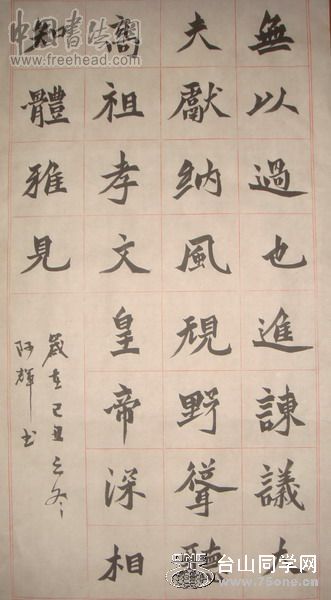 無以過也進諫議大
夫獻納風規野聳聽
高祖孝文皇帝深相
知體雅見
歲在己丑之冬
阿輝书
中国書法網
www.freehead.com
台山同学网
www.75one.cn